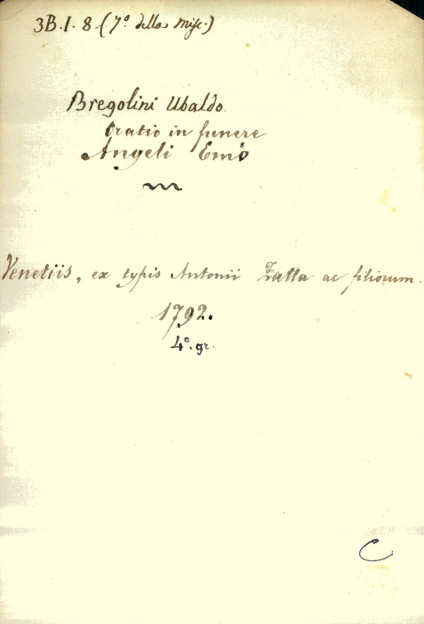 3B.I.8 (7º della Misc.)
Bregolini Ubaldo.
Oratio in funere
Angeli Emo
Venetiis, ex typis Antonii Zatta ac filiorum.
1792.
4º. gr.
C